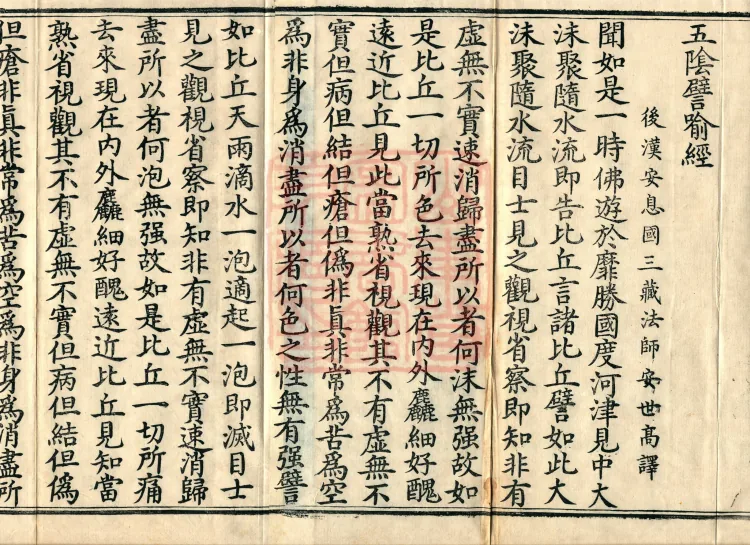 五陰譬喻經
後漢安息國三藏法師安世高譯
聞如是一時佛遊於靡勝國度河津見中大
沫聚隨水流即告比丘言諸比丘譬如此大
沫聚隨水流目士見之觀視省察即知非有
虛無不實速消歸盡所以者何沫無强故如
是比丘一切所色去來現在內外麤細好醜
遠近比丘見此當熟省視觀其不有虛無不
實但病但結但瘡但僞非眞非常爲苦爲空
爲非身爲消盡所以者何色之性無有强譬
如比丘天雨滴水一泡適起一泡即滅目士
見之觀視省察即知非有虛無不實速消歸
盡所以者何泡無强故如是比丘一切所痛
去來現在內外麤細好醜遠近比丘見知當
熟省視觀其不有虛無不實但病但結但僞
但瘡非眞非常爲苦爲空爲非身爲消盡所